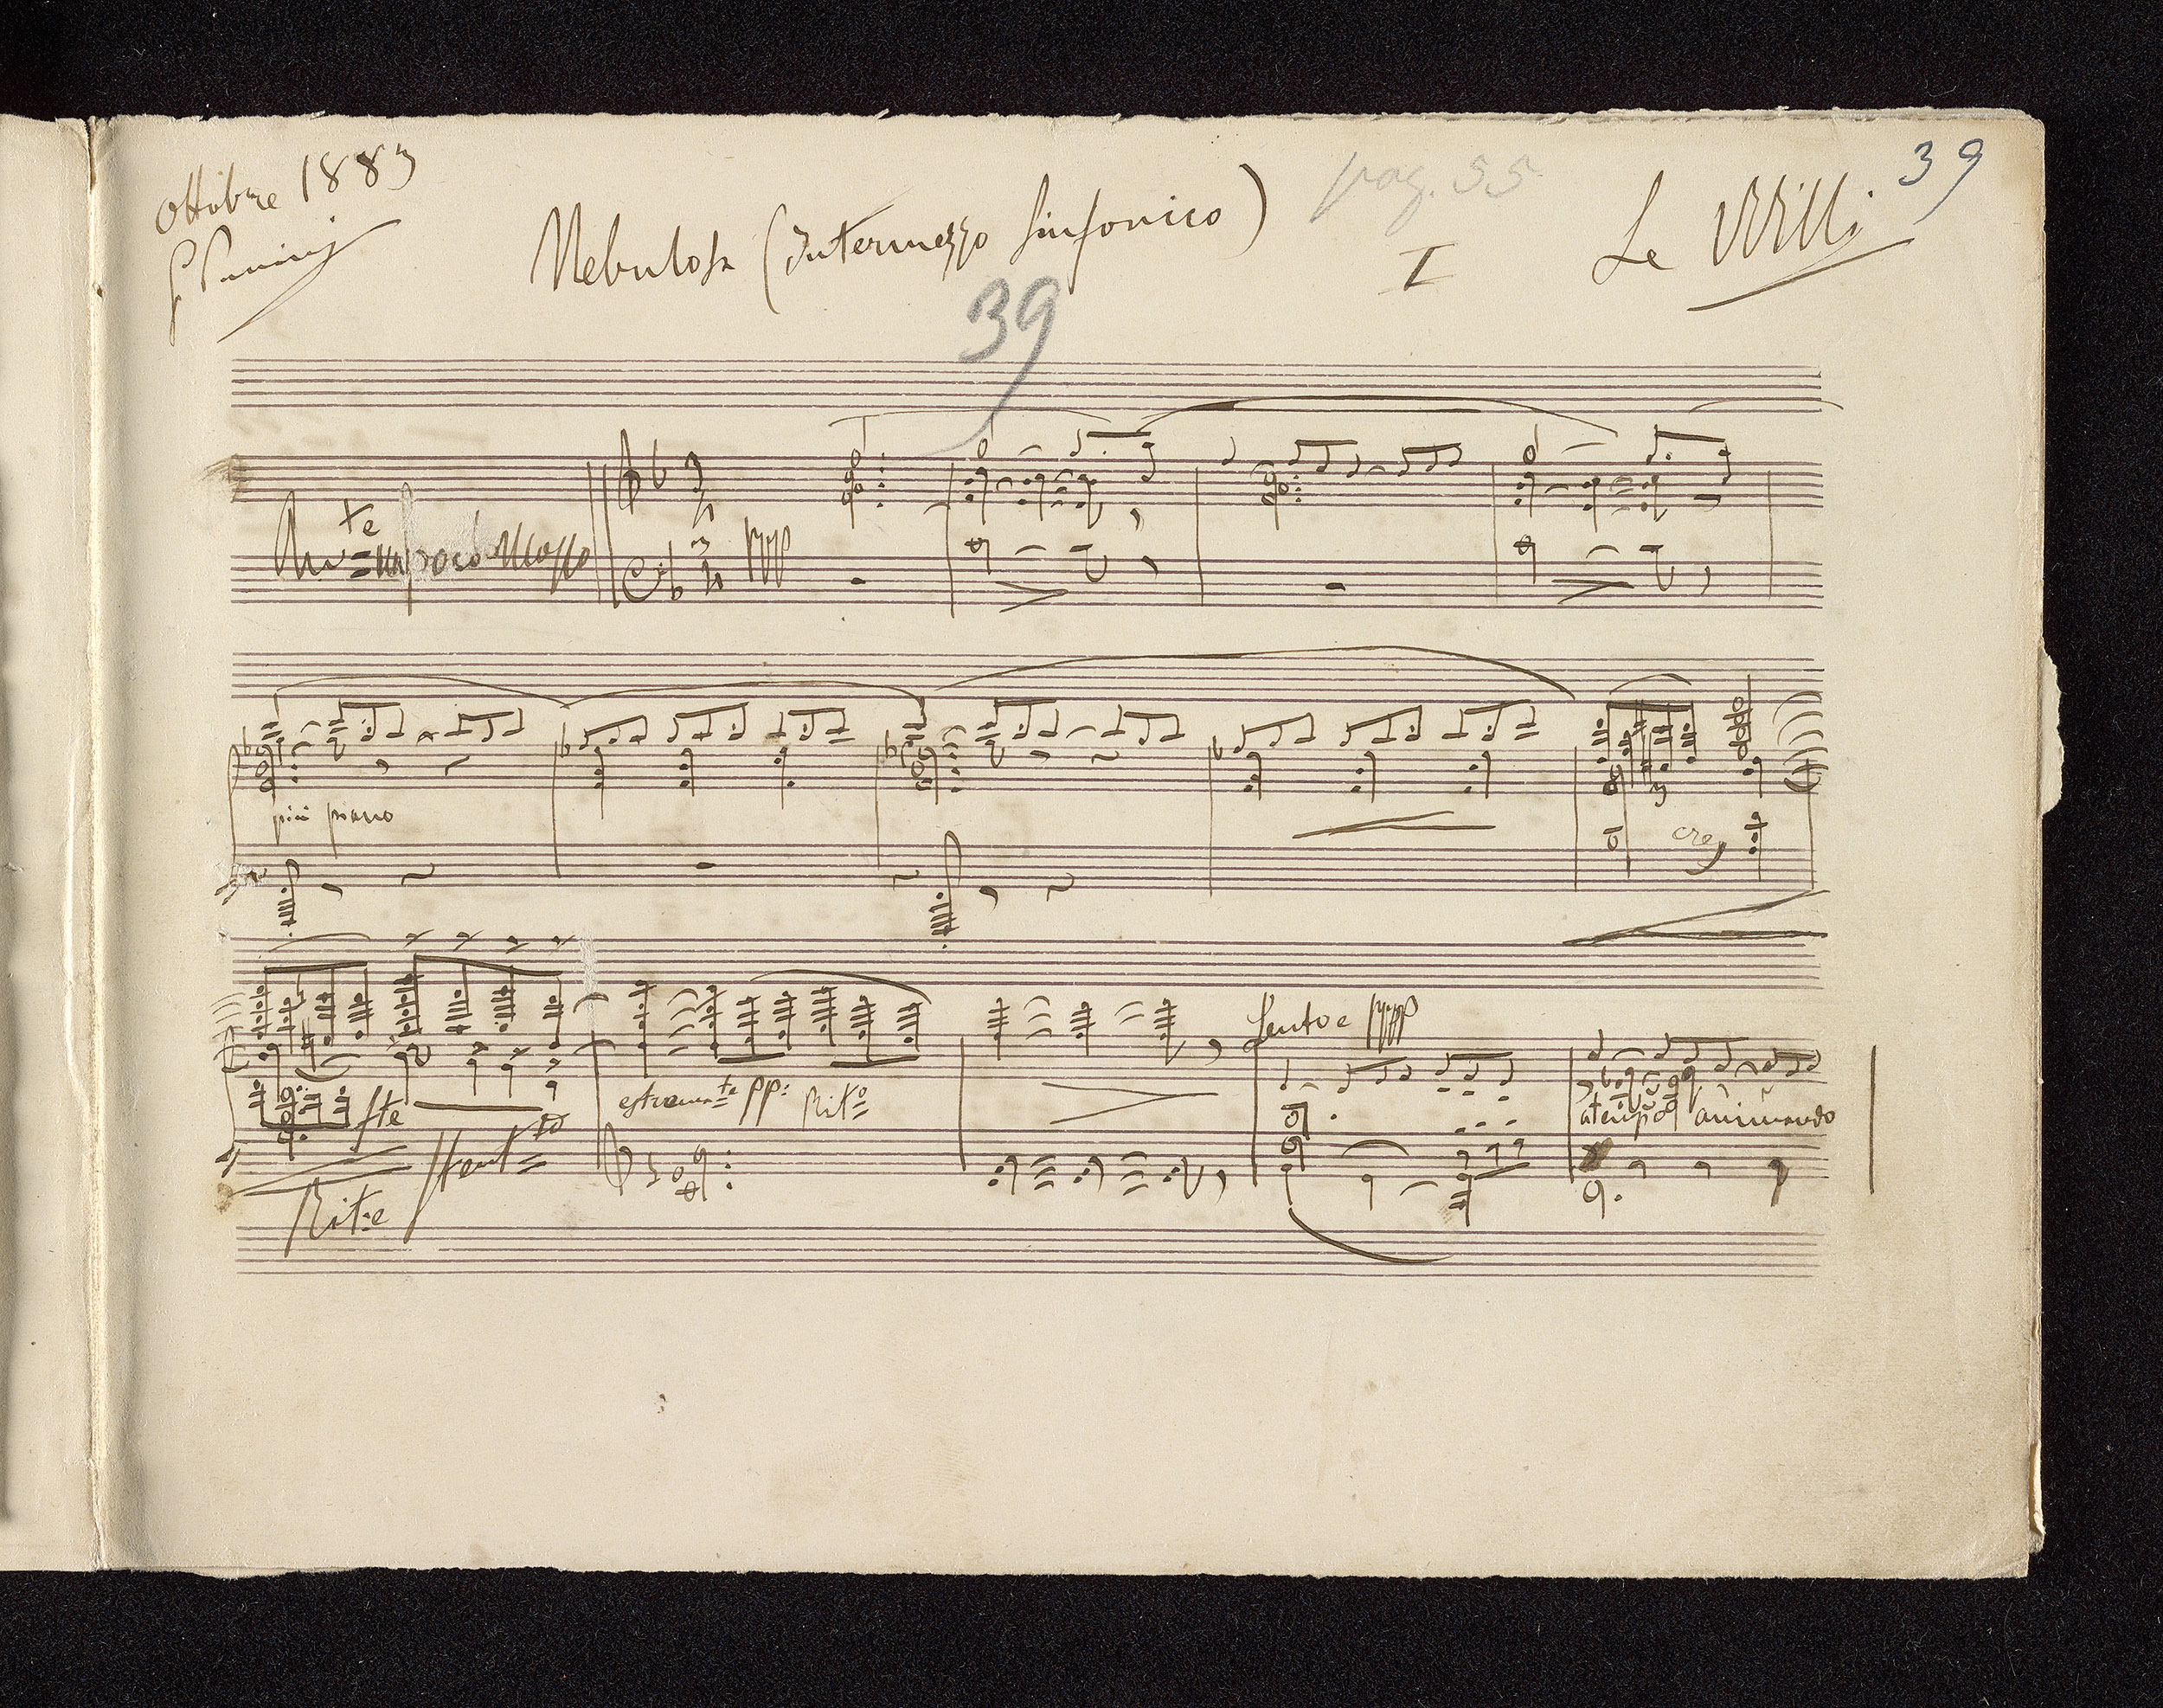 Ottobre 1883
G Puccini
Nebulosa (Intermezzo Sinfonico)
pag. 55
I
Le Willi
39
39
And.te un poco mosso
3
4
3
4
ppp
più piano
cres
f.te
Rit.e
stent.to
estremam.te pp:
Rit.o
Lento e pppp
a tempo animando